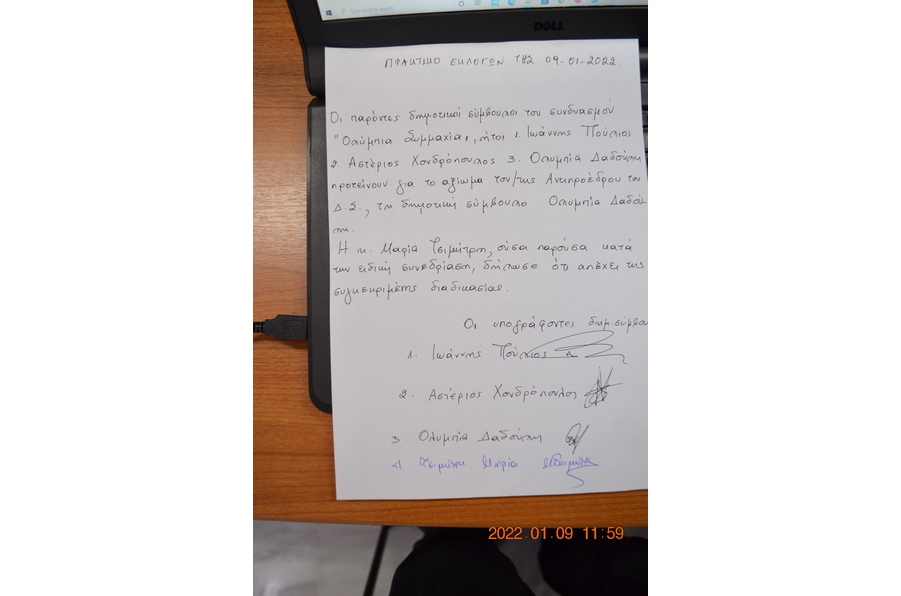 Type here to search
DELL
ΠΡΑΚΤΙΚΟ ΕΚΛΟΓΩΝ ΤΗΣ 09-01-2022.
Οι παρόντες δημοτικοί σύμβουλοι του συνδυασμού
"Ολύμπια Συμμαχία", ήτοι 1. Ιωάννης Πούλιος
2. Αστέριος Χονδρόπουλος 3. Ολυμπία Δαδούλη
προτείνουν για το αξίωμα του/της Αντιπροέδρου του
Δ.Σ., τη δημοτική σύμβουλο Ολυμπία Δαδού
λη.
Η κ. Μαρία Τσιμήτρη, ούσα παρούσα κατά
την ειδική συνεδρίαση, δήλωσε ότι απέχει της
συγκεκριμένης διαδικασίας.
Οι υπογράφοντες δημ. σύμβου
1. Ιωάννης Πούλιος
2. Αστέριος Χονδρόπουλος
3. Ολυμπία Δαδούλη
4. Μαρία
2022.01.09 11:59